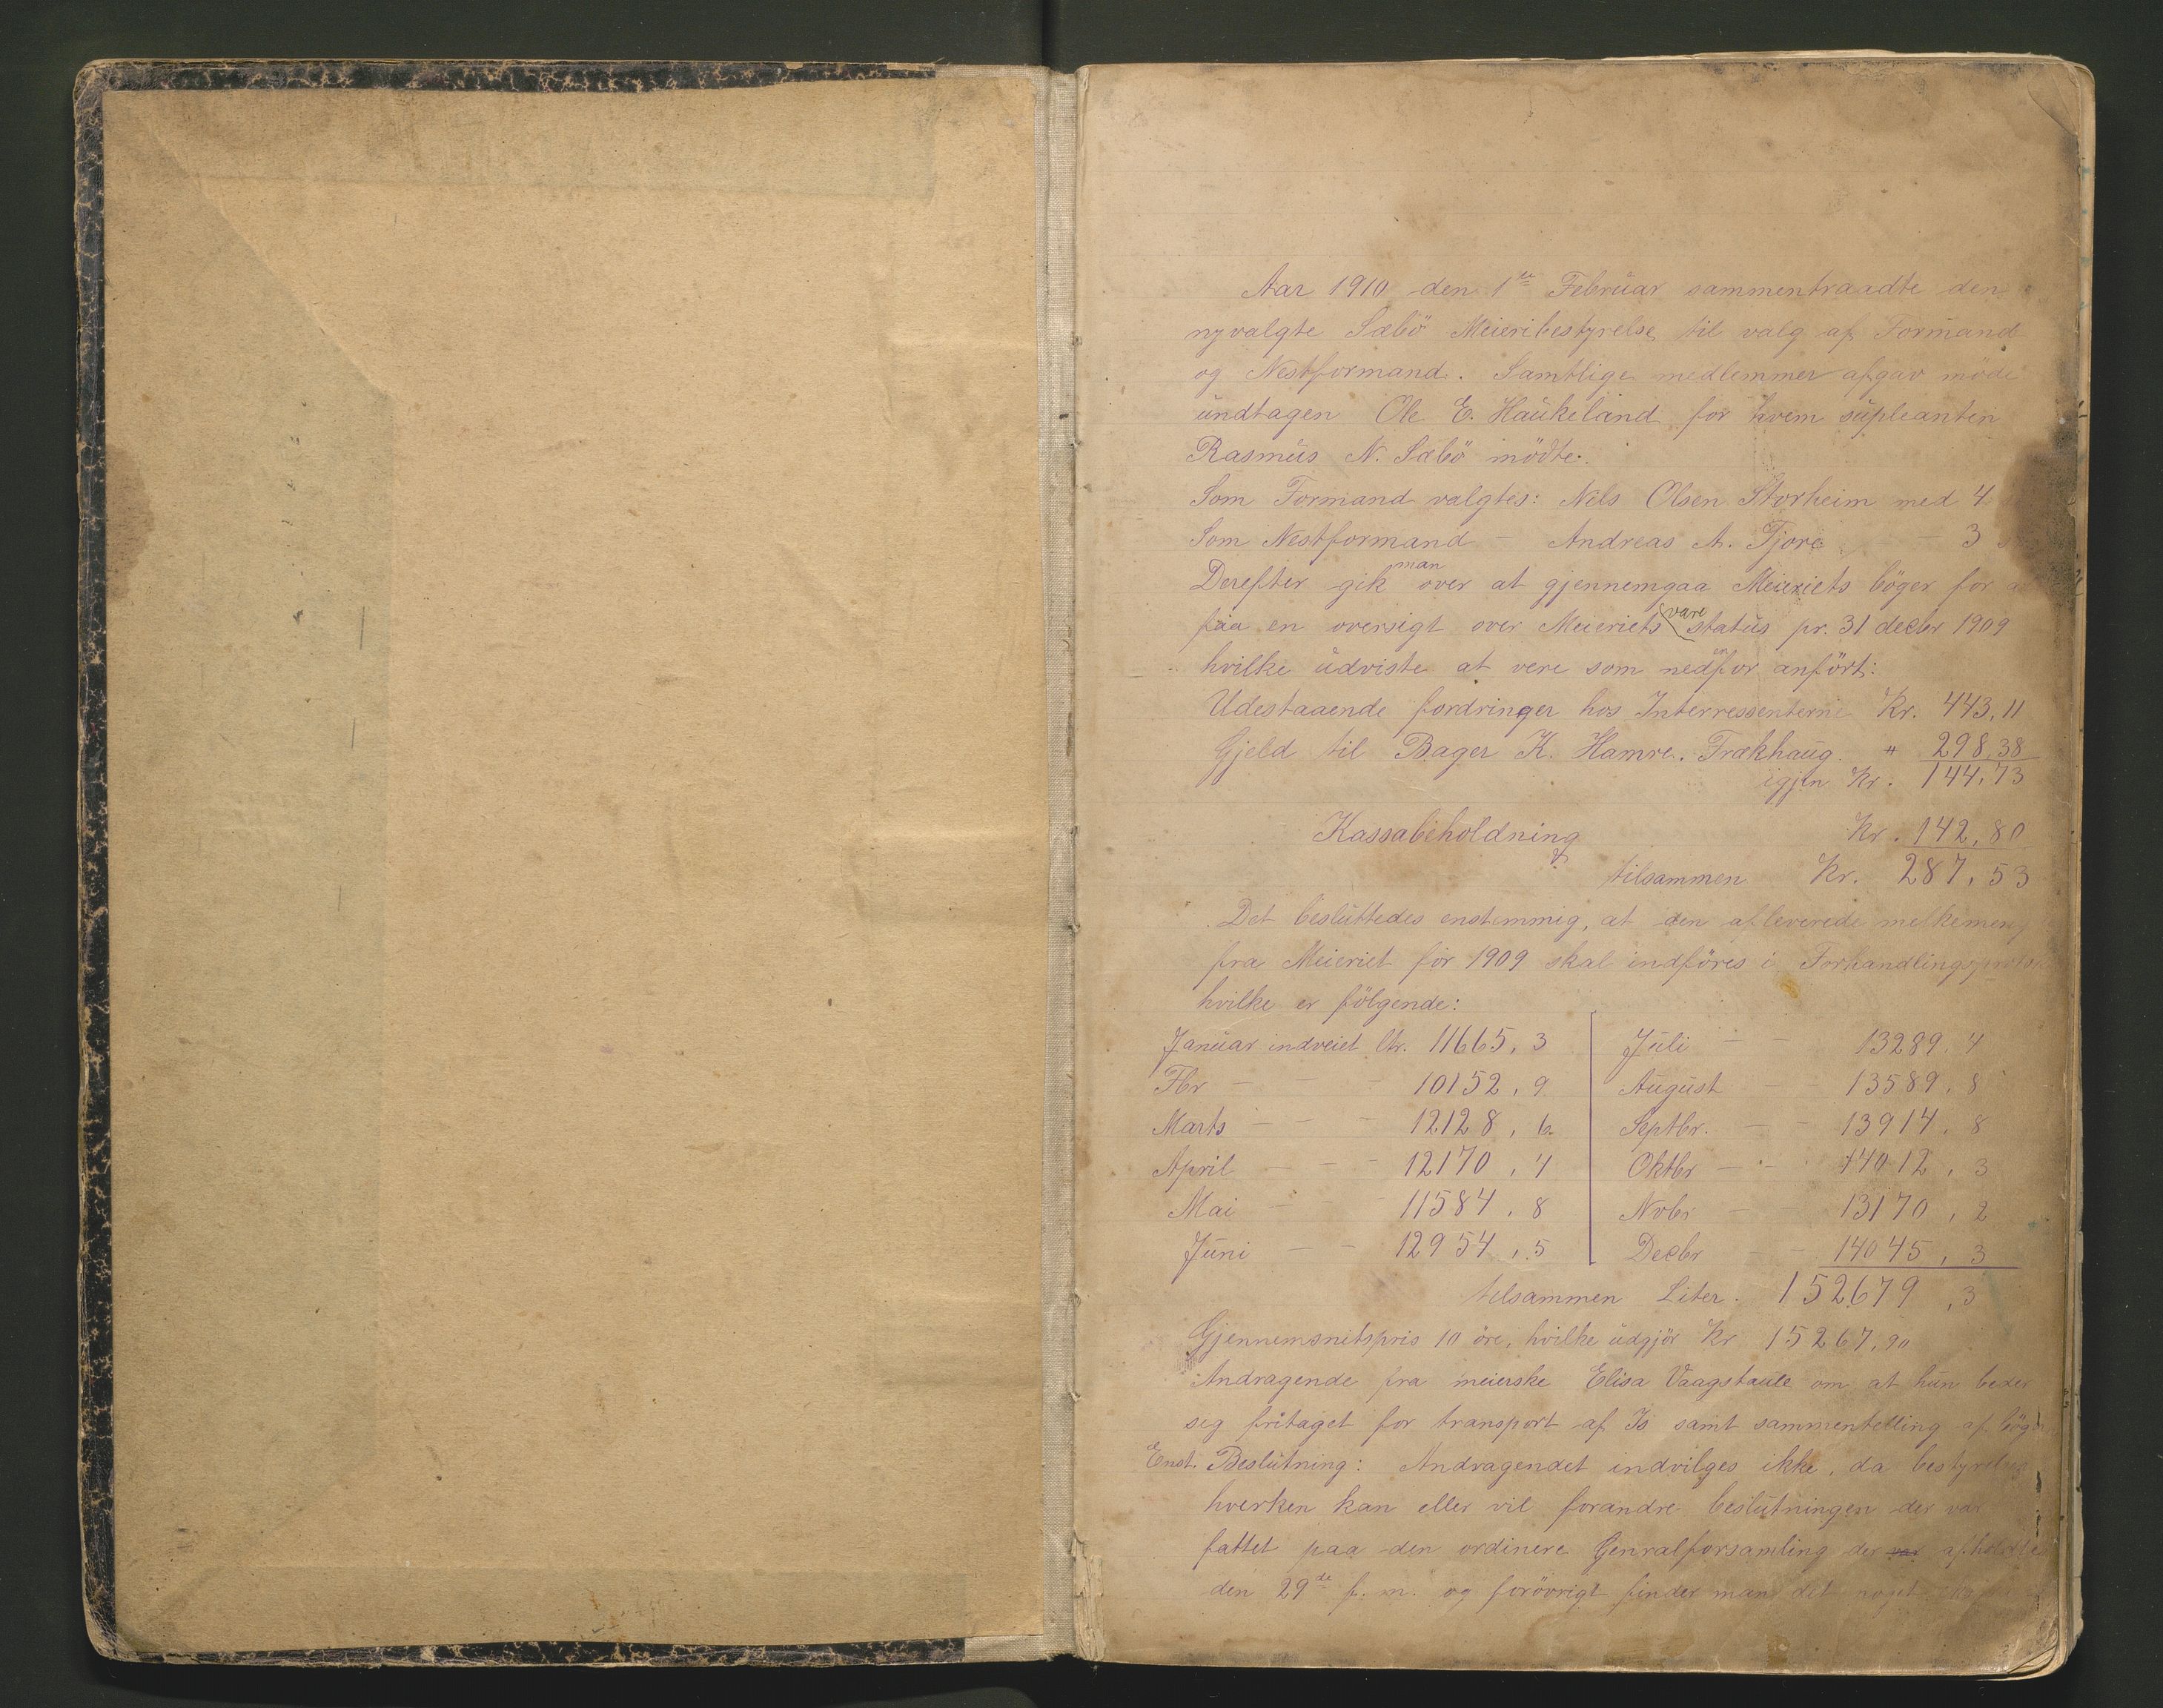 Aar 1910 den 1ste Februar sammentraadte den
nyvalgte Sæbö Meieribestyrelse til valg af Formand
og Nestformand. Samtlige medlemmer afgav möde
undtagen Ole E. Haukeland for hvem supleanten
Rasmus N. Sæbö mödte.
Som Formand valgtes: Nils Olsen Storheim med 4
Som Nestformand - Andreas A. Fjore - 3
Derefter gik man over at gjennemgaa Meieriets böger for
faa en oversigt over Meieriets vare status pr. 31 decbr 1909
hvilke udviste at vere som nedenfor anfört:
Udestaaende fordringer hos Interressenterne Kr. 443,11
Gjeld til Bager K. Hamre. Frækhaug. " 298,38
igjen Kr. 144,73
Kassabeholdning Kr. 142,80
tilsammen Kr. 287,53
Det besluttedes enstemmig, at den afleverede melkemeng
fra Meieriet for 1909 skal indföres i
hvilke er fölgende:
Januar indveiet ltr. 11665,3 Juli - - 13289,4
Fbr - - - 10152,9 August - 13589,8
Marts - - - 12128,6 Septbr. - - 13914,8
April - - - 12170,4 Oktbr - - 14012,3
Mai - - - 11584,8 Novbr - - 13170,2
Juni - - 12954,5 Decbr - - 14045,3
tilsammen Liter. 152679,3
Gjennemsnitspris 10 öre, hvilke udgjör Kr 15267,90
Andragende fra meierske Elisa Vaagstaule om at hun beder
seg fritaget for transport af Is samt sammentelling af
Enst. Beslutning: Andragendet indvilges ikke, da bestyrelsen
hverken kan eller vil forandre beslutningen der var
fattet paa den ordinere Genralforsamling der afholdtes
den 29de f. m. og forövrigt finder man det noget